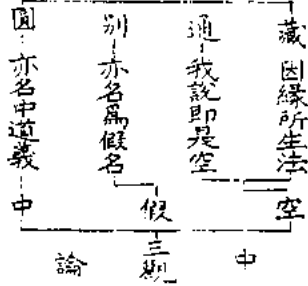 藏 因緣所生法 空
通 我說即是空
別 亦名爲假名 假
圓 亦名中道義 中
中論三觀